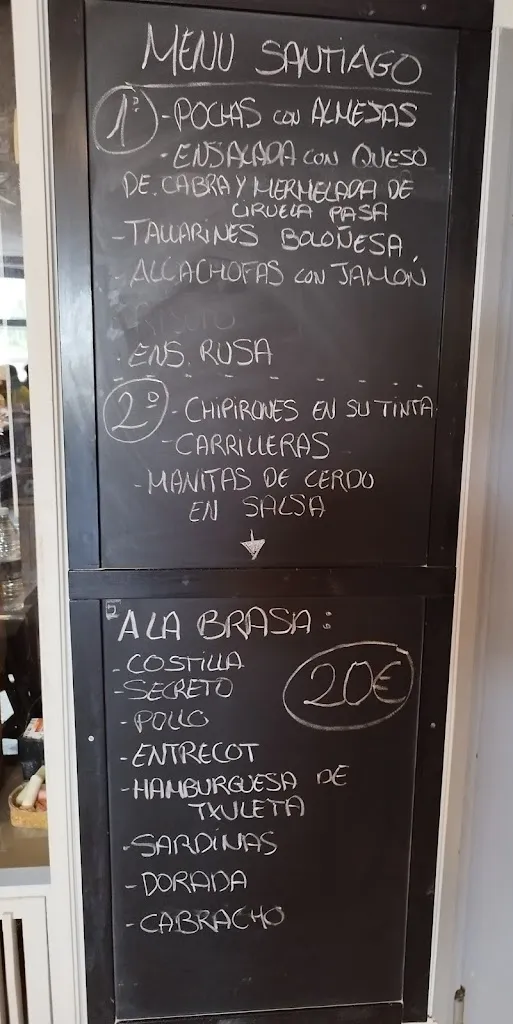 MENU SANTIAGO
1º - POCHAS con ALMEJAS
- ENSALADA con QUESO
DE CABRA Y MERMELADA DE
CIRUELA PASA
- TALLARINES BOLOÑESA
- ALCACHOFAS con JAMON
- ENS. RUSA
2º - CHIPIRONES EN SU TINTA
- CARRILLERAS
- MANITAS DE CERDO
EN SALSA
A LA BRASA:
- COSTILLA
20€
- SECRETO
- POLLO
- ENTRECOT
- HAMBURGUESA DE
TXULETA
- SARDINAS
- DORADA
- CABRACHO